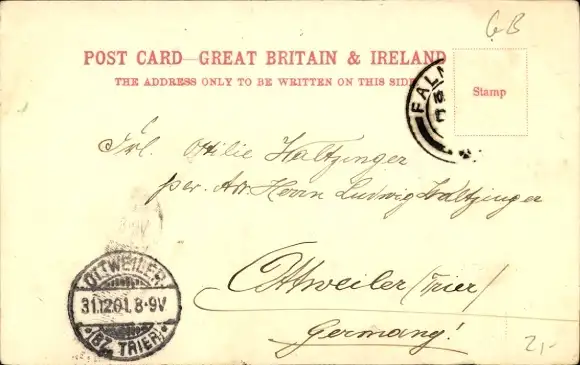 GB
POST CARD—GREAT BRITAIN & IRELAND
THE ADDRESS ONLY TO BE WRITTEN ON THIS SIDE
Stamp
FALM
Frl. Ottilie Waltzinger
per. Adr. Herrn Ludwig Waltzinger
Ottweiler /Trier/
Germany!
OTTWEILER
31.12.01. 8-9V
* (BZ. TRIER) *
2,-